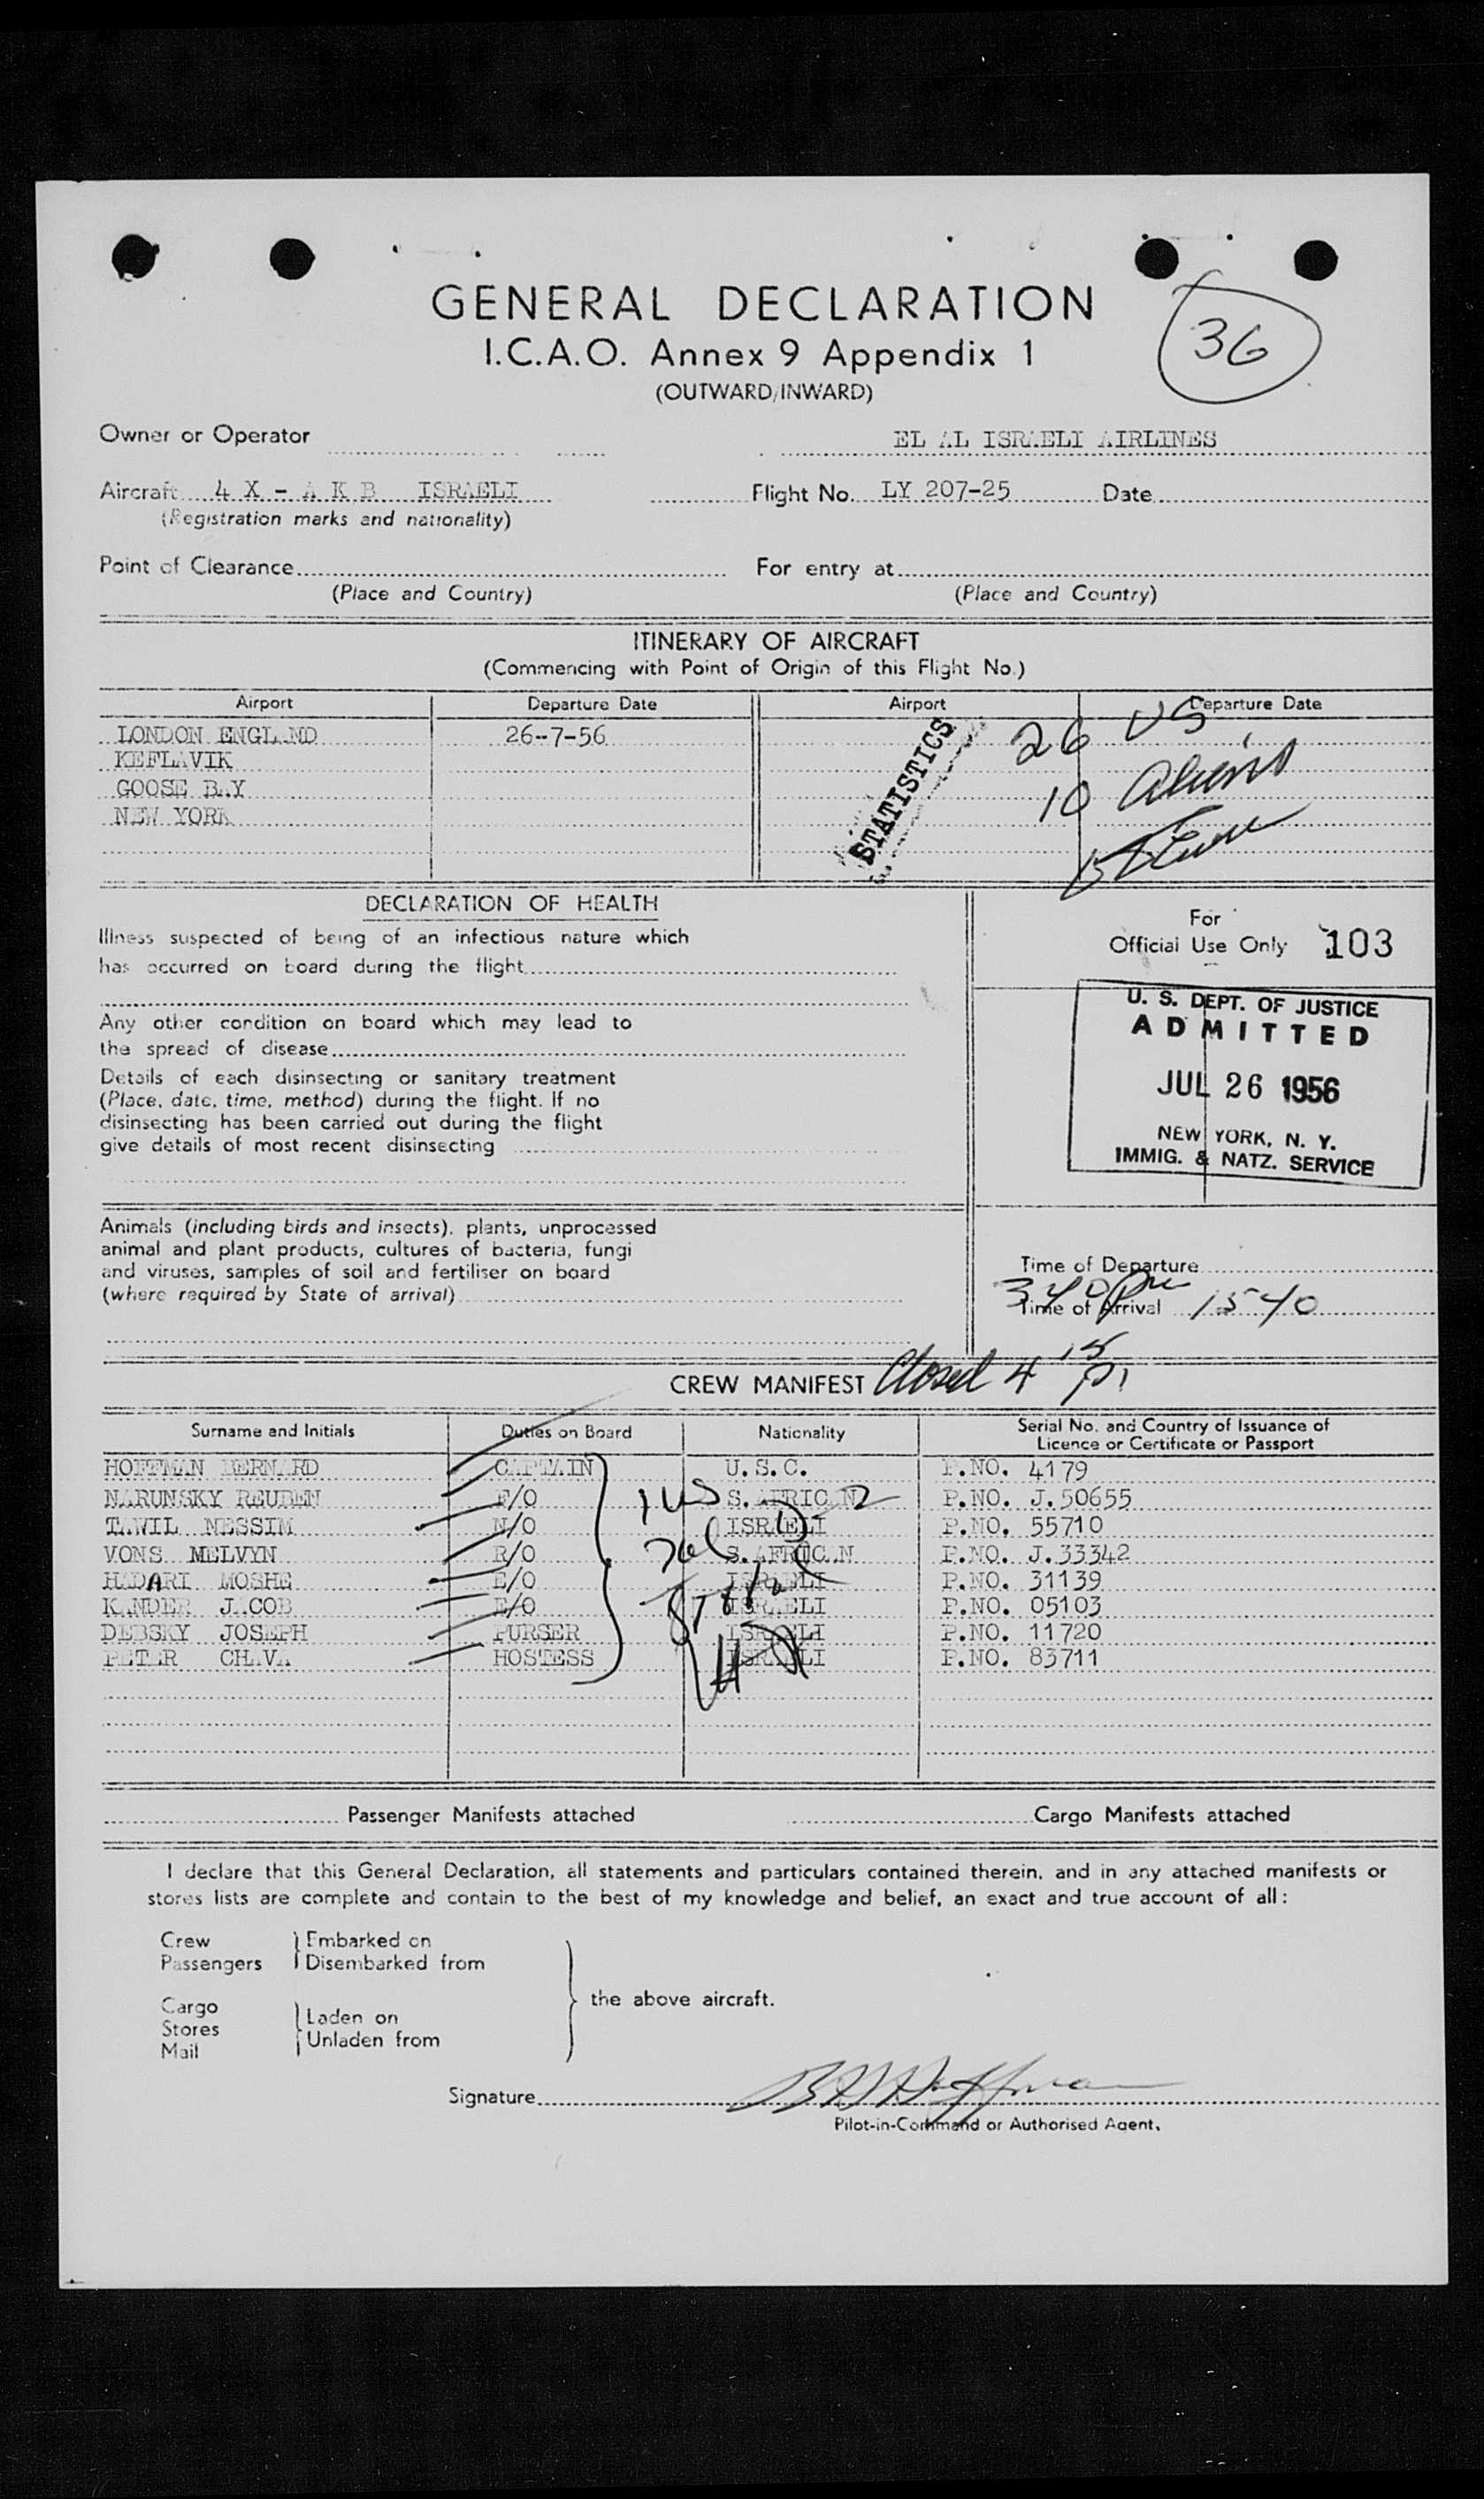 GENERAL DECLARATION
36
I.C.A.O. Annex 9 Appendix 1
(OUTWARD/INWARD)
Owner or Operator EL AL ISRAELI AIRLINES
Aircraft 4 X - A K B ISRAELI Flight No. LY 207-25 Date
(Registration marks and nationality)
Point of Clearance For entry at
(Place and Country) (Place and Country)
ITINERARY OF AIRCRAFT
(Commencing with Point of Origin of this Flight No.)
Airport Departure Date Airport Departure Date
LONDON ENGLAND 26-7-56 26 US
KEFLAVIK
GOOSE BAY 10 Aliens
NEW YORK
STATISTICS
DECLARATION OF HEALTH
Illness suspected of being of an infectious nature which
has occurred on board during the flight
Any other condition on board which may lead to
the spread of disease
Details of each disinsecting or sanitary treatment
(Place, date, time, method) during the flight. If no
disinsecting has been carried out during the flight
give details of most recent disinsecting
For
Official Use Only 103
U. S. DEPT. OF JUSTICE
ADMITTED
JUL 26 1956
NEW YORK, N. Y.
IMMIG. & NATZ. SERVICE
Animals (including birds and insects), plants, unprocessed
animal and plant products, cultures of bacteria, fungi
and viruses, samples of soil and fertiliser on board
(where required by State of arrival)
Time of Departure
340 pm
Time of Arrival 1540
CREW MANIFEST Closed 4 15
Surname and Initials Duties on Board Nationality Serial No. and Country of Issuance of
Licence or Certificate or Passport
HOFFMAN BERNARD CAPTAIN U.S.C. P.NO. 4179
NARUNSKY REUBEN F/O 1 US S.AFRICAN P.NO. J.50655
TAWIL NESSIM N/O ISRAELI P.NO. 55710
VONS MELVYN R/O S.AFRICAN P.NO. J.33342
HADARI MOSHE E/O ISRAELI P.NO. 31139
KANDER JACOB E/O ISRAELI P.NO. 05103
DEBSKY JOSEPH PURSER ISRAELI P.NO. 11720
PETER CHAVA HOSTESS ISRAELI P.NO. 83711
Passenger Manifests attached Cargo Manifests attached
I declare that this General Declaration, all statements and particulars contained therein, and in any attached manifests or
stores lists are complete and contain to the best of my knowledge and belief, an exact and true account of all:
Crew Embarked on
Passengers Disembarked from
the above aircraft.
Cargo Laden on
Stores
Unladen from
Mail
Signature B H Hoffman
Pilot-in-Command or Authorised Agent.